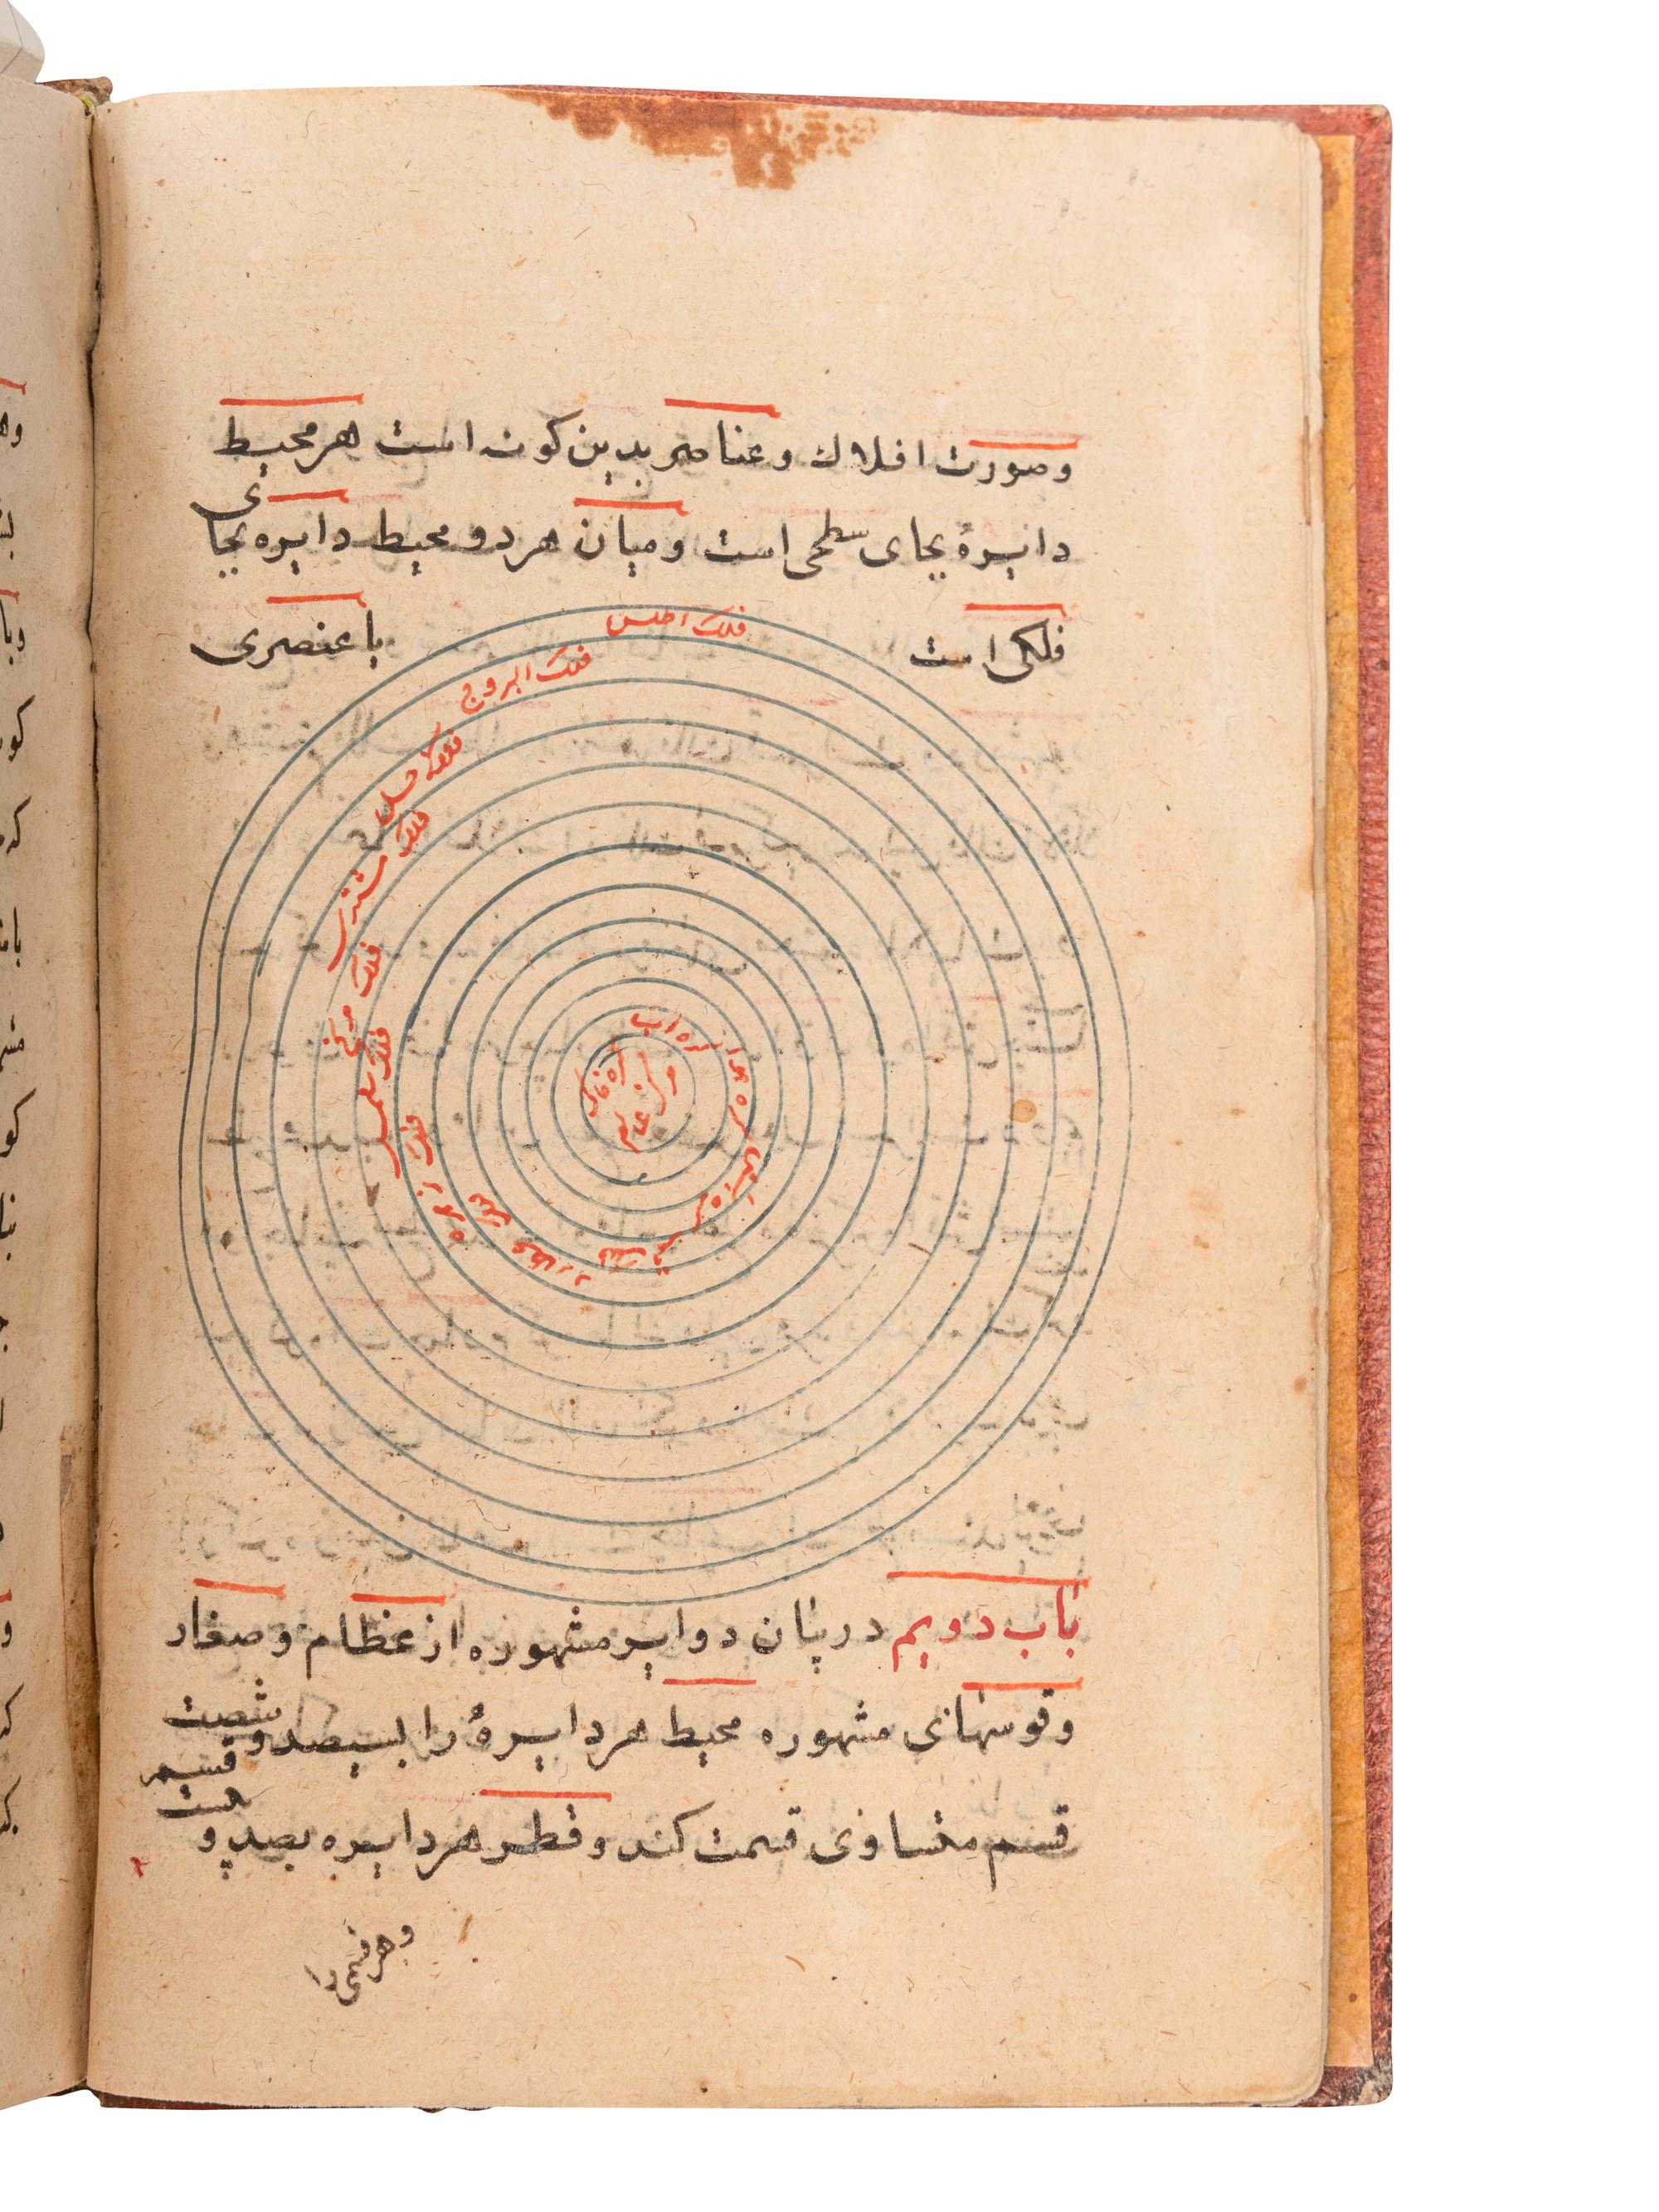 وصورت افلاك وعناصر بدين كونه است هر محيط
دايرهٔ بجاى سطحى است وميان هر دو محيط دايره بجاى
فلكى است    يا عنصرى
فلك اطلس
فلك البروج
فلك زحل
فلك مشترى
فلك مريخ
فلك شمس
فلك زهره
فلك عطارد
فلك قمر
كره اتش
كره هوا
كره اب
كره خاك
مركز عالم
باب دويم در بيان دواير مشهوره از عظام وصغار
وقوسهاى مشهوره محيط هر دايرهٔ را بسيصد وشصت
قسم متساوى قسمت كند وقطر هر دايره بصد و بيست قسم
وهر قسمى را